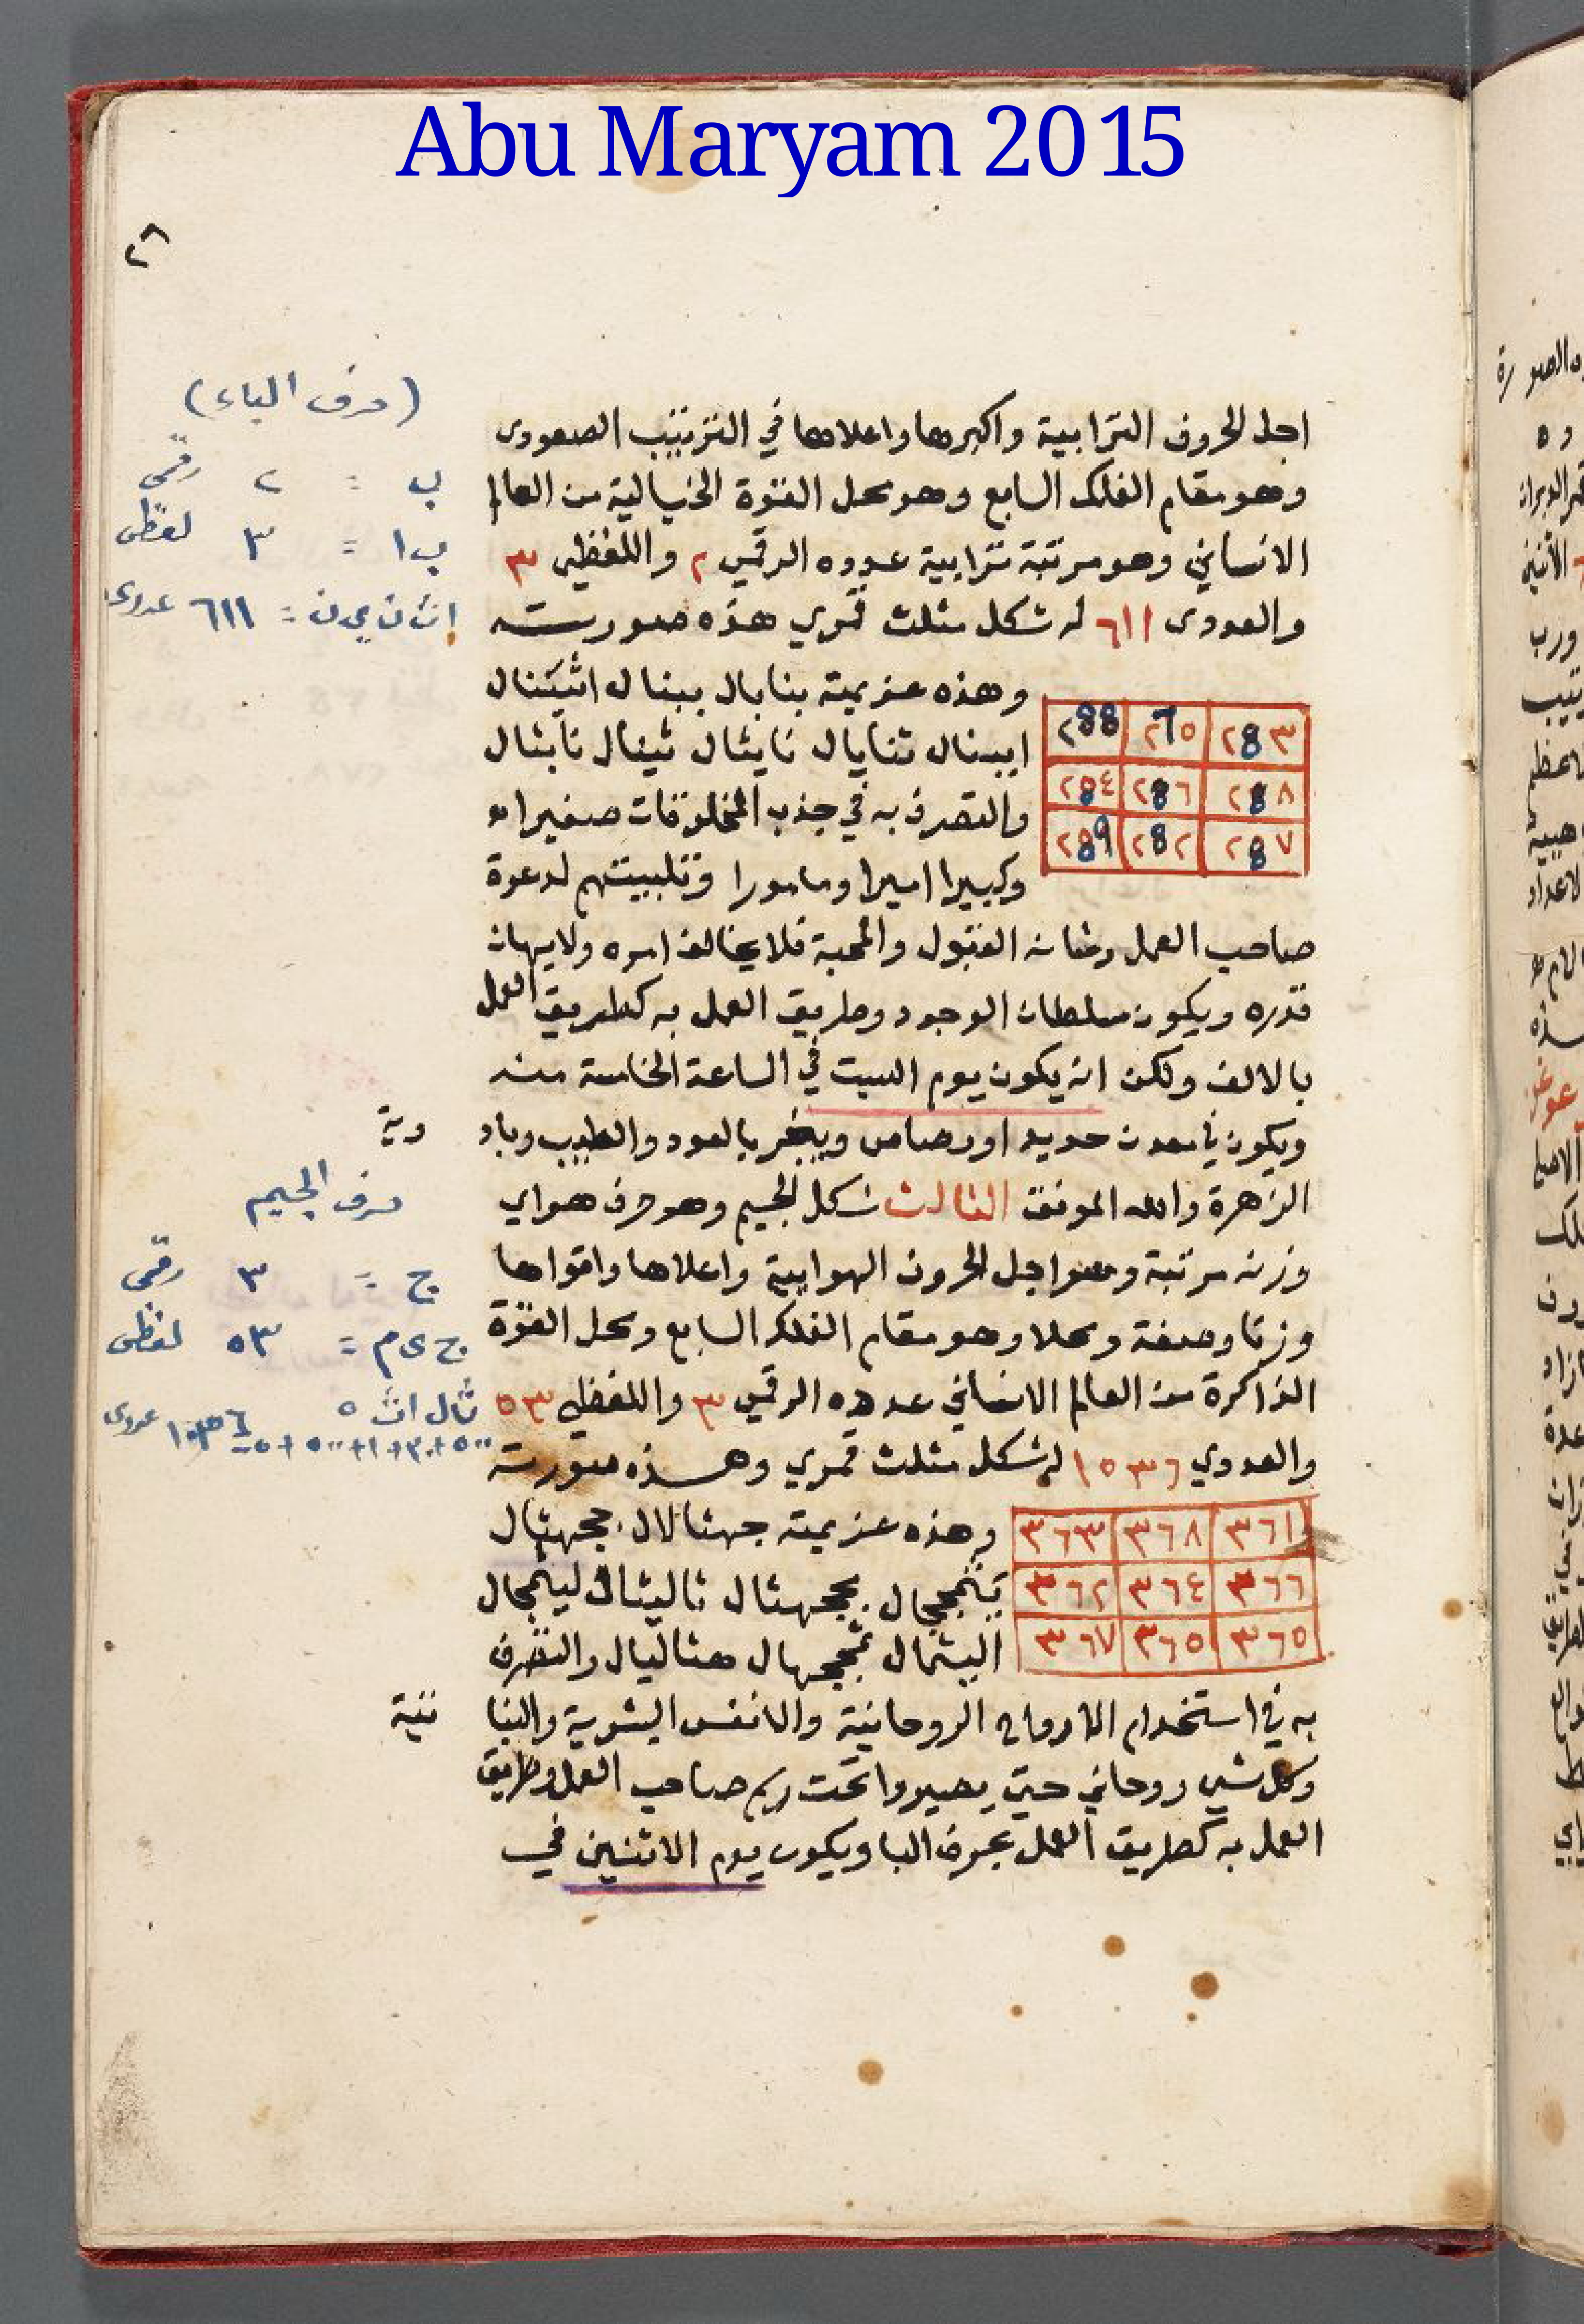 Abu Maryam 2015
٢٦
(حرف الباء)
ب = ٢ رقمى
ب ا = ٣ لفظى
اث ن ي ن = ٦١١ عددى
اجل الحروف الترابية واكبرها واعلاها في الترتيب الصعودى
وهو مقام الفلك السابع وهو محل القوة الخيالية من العالم
الانساني وهو مرتبة ترابية عدده الرقمي ٢ واللفظي ٣
والعددى ٦١١ له شكل مثلث قمري هذه صورته
وهذه عزيمته بنابال ببنال اثيننال
ايبنال تنايال نايثال ثينال نابثال
والتصرف به في جذب المخلوقات صغيرا او
وكبيرا اميرا ومامورا وتلبيتهم لدعوة
٢88 ٢٦٥ ٢8٣
٢8٤ ٢8٦ ٢8٨
٢89 ٢8٢ ٢8٧
صاحب العمل وشانه القبول والمحبة فلا يخالف امره ولا يهان
قدره ويكون سلطان الوجود وطريق العمل به كطريق العمل
بالالف ولكن انه يكون يوم السبت في الساعة الخامسة منه
ويكون في معدن حديد او رصاص ويبخر بالعود والطيب وباد
دية
الزهرة والله الموفق الثالث شكل الجيم وهو حرف هواي
حرف الجيم
ج = ٣ رقمى
ج ى م = ٥٣ لفظى
ثال اث ٥
٥٠٠+٣٠+١+٥٠٠+٥ ١٠٣٦ عددى
وزنه مرتبة وهو اجل الحروف الهوايية واعلاها واقواها
وزنا وصفة ومحلا وهو مقام الفلك السابع ومحل القوة
الذاكرة من العالم الانساني عدده الرقمي ٣ واللفظي ٥٣
والعددي ١٥٣٦ له شكل مثلث قمري وهذه صورته
وهذه عزيمته جهثالال ججهثال
البثمال ثمججهال هثاليال والتصرف
٣٦٣ ٣٦٨ ٣٦١
٣٦٢ ٣٦٤ ٣٦٦
٣٦٧ ٣٦٥ ٣٦٥
به في استخدام الارواح الروحانية والانفس البشرية والنبا
تية
وكل شي روحاني حتى يصيروا تحت رسم صاحب العمل وطريق
العمل به كطريق العمل بحرف البا ويكون يوم الاثنين في